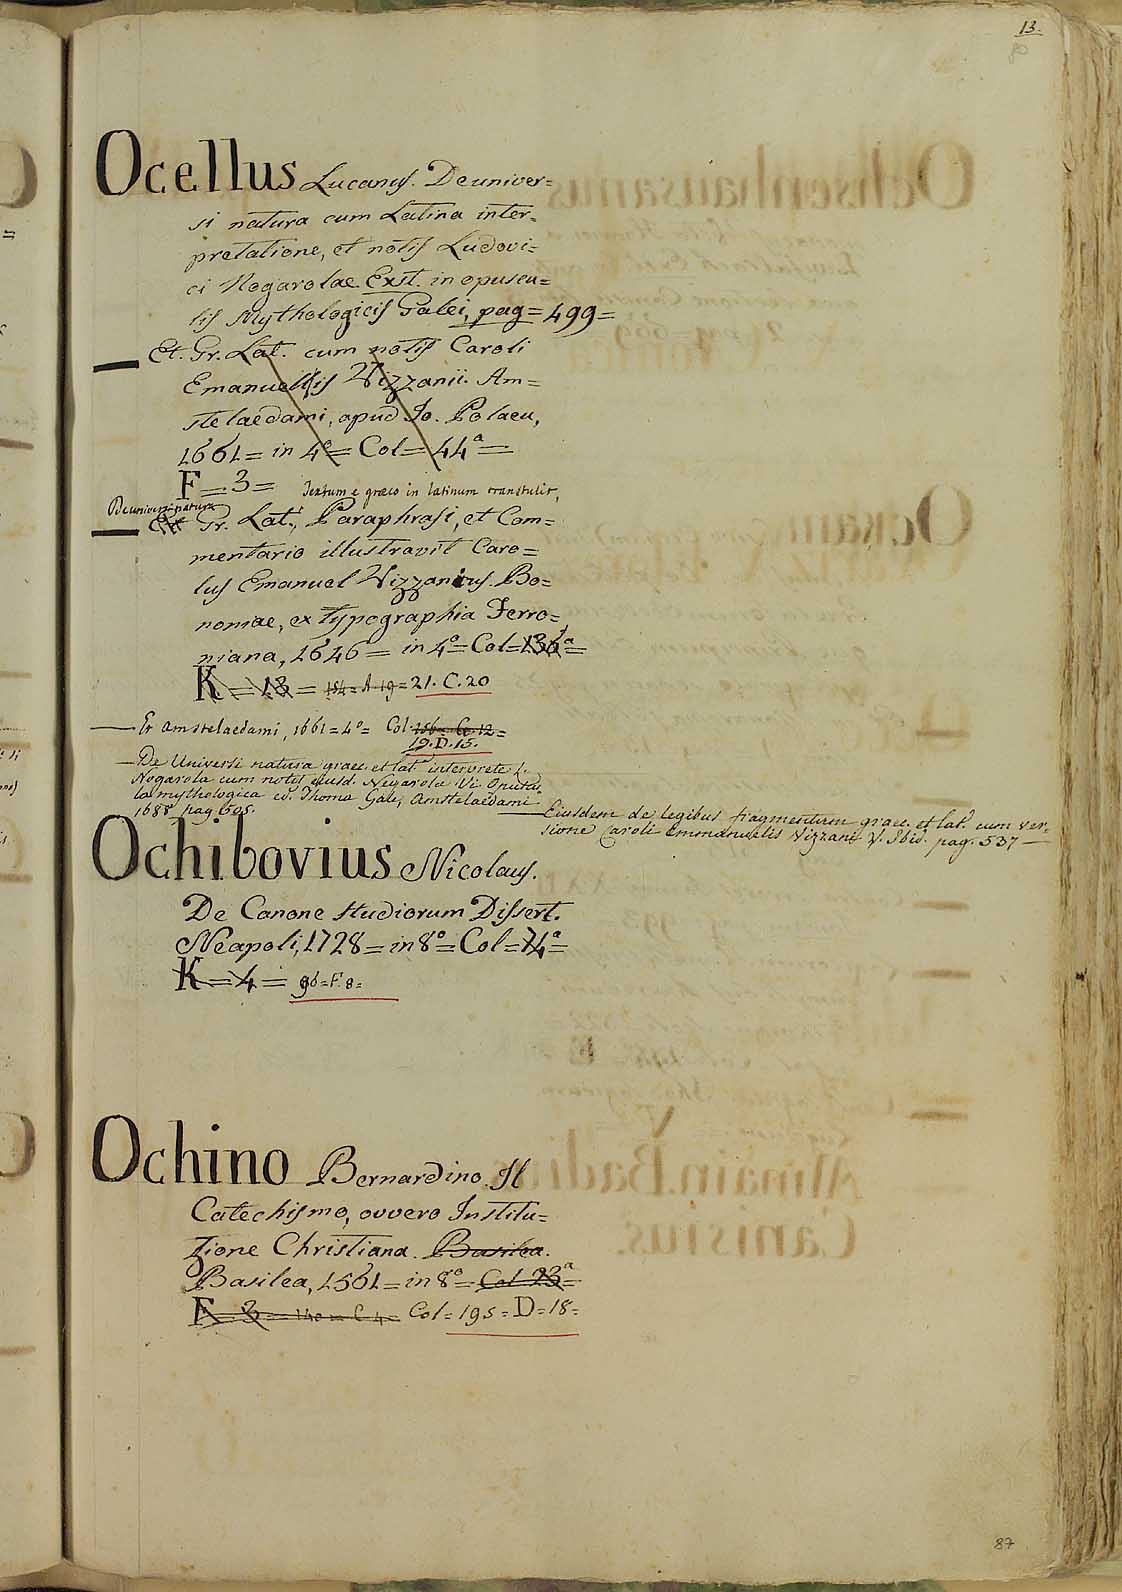 13.
80
Ocellus Lucanus. De univer=
si natura cum Latina inter=
pretatione, et notis Ludovi=
ci Nogarolae. Exst. in opuscu=
lis Mythologicis Galei, pag = 499 =
— Et. Gr. Lat. cum notis Caroli
Emanuellis Vizzanii. Am=
stelaedami, apud Jo. Blaeu,
1661 = in 4° = Col = 44ª =
F = 3 = Textum e graeco in latinum transtulit,
De universi natura
— Gr. Lat. Paraphrasi, et Com=
mentario illustravit Caro=
lus Emanuel Vizzanius. Bo=
noniae, ex typographia Ferro=
niana, 1646 = in 4° = Col = 136ª =
K = 13 = 184 = A 19 = 21. C. 20
— Et Amstelaedami, 1661 = 4° = Col 156 = 12 =
19. D. 15.
— De Universi natura graec. et lat. interprete L.
Nogarola cum notis ejusd. Nogarola Vi. Opuscu
la mythologica ed. Thoma Gale, Amstelaedami
1688 pag 505.
— Eiusdem de legibus fragmentum graec. et lat. cum ver=
sione Caroli Emmanuelis Vizzani V. Ibid. pag. 537 —
Ochibovius Nicolaus.
De Canone studiorum Dissert.
Neapoli, 1728 = in 8° = Col = 74ª =
K = 4 = 96 = F. 8 =
Ochino Bernardino. Il
Catechismo, ovvero Institu=
zione Christiana. Basilea.
Basilea, 1561 = in 8° = Col 23ª =
F = 3 = 140 = C 4 = Col = 195 = D = 18 =
87